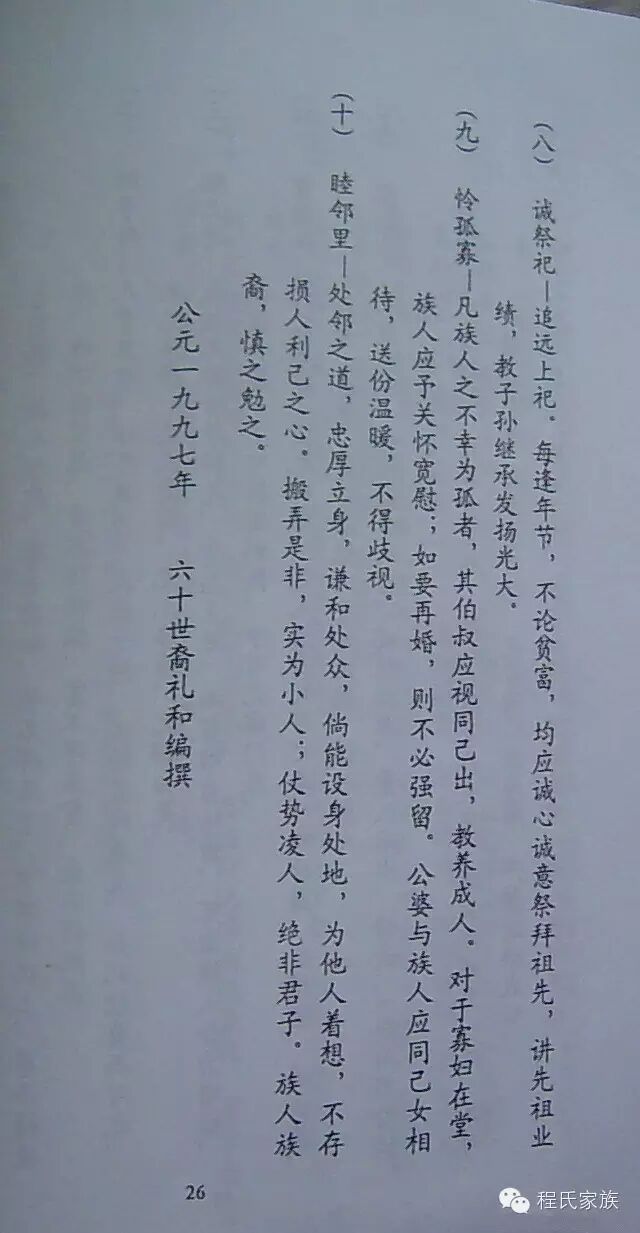 （八） 诚祭祀—追远上祀。每逢年节，不论贫富，均应诚心诚意祭拜祖先，讲先祖业
绩，教子孙继承发扬光大。
（九） 怜孤寡—凡族人之不幸为孤者，其伯叔应视同己出，教养成人。对于寡妇在堂，
族人应予关怀宽慰；如要再婚，则不必强留。公婆与族人应同己女相
待，送份温暖，不得歧视。
（十） 睦邻里—处邻之道，忠厚立身，谦和处众，倘能设身处地，为他人着想，不存
损人利己之心。搬弄是非，实为小人；仗势凌人，绝非君子。族人族
裔，慎之勉之。
公元一九九七年 六十世裔礼和编撰
26
程氏家族